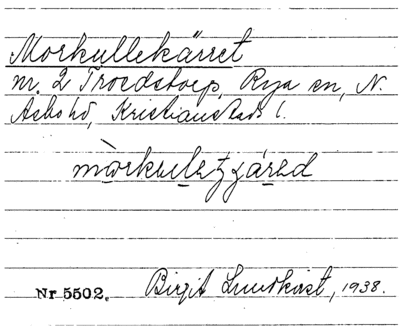 Morkullekärret
nr. 2 Troedstorp, Rya sn, N.
Åsbo hd, Kristianstads l.
Nr 5502. Birgit Lundkvist, 1938.